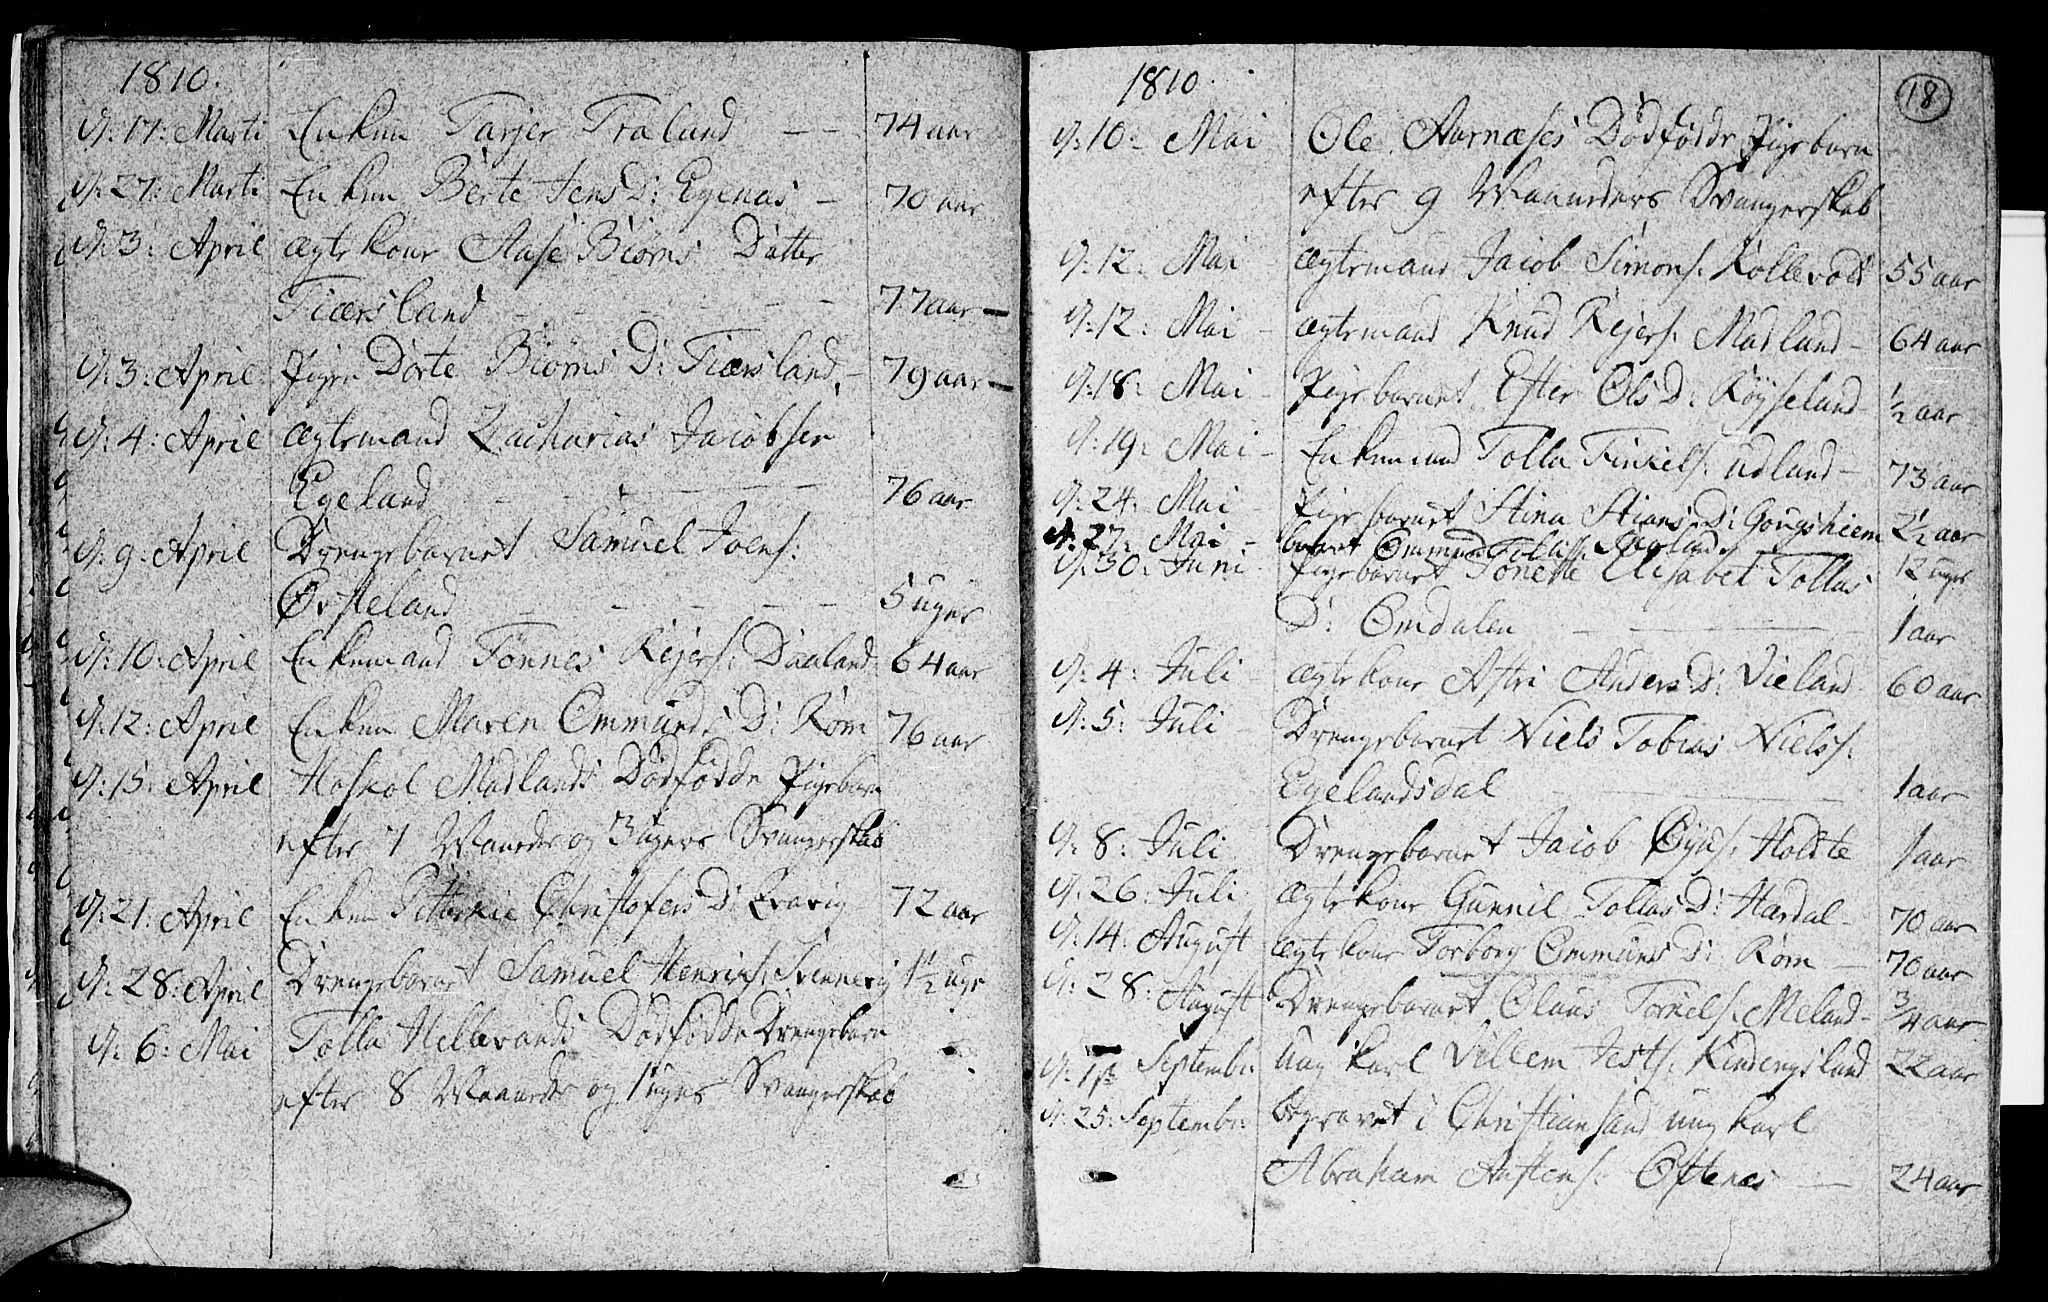 1810.
d: 17: Marti Enken Tarjer Træland — — 74 aar
d: 27: Marti Enken Berte Jens D: Egenæs — 70 aar
d: 3: April ægtekone Aase Biørns Datter
Fiærsland — — — 77 aar —
d: 3: April Pigen Dorte Biørns D: Fiærsland, — 79 aar —
d: 4: April ægtemand Zacharias Jacobsen
Egeland — — — — 76 aar
d: 9: April Drengebarnet Samuel Joens:
Ørsteland — — — — 5 uger
d: 10: April Enkemand Tønnes Rejers: Daaland 64 aar
d: 12: April Enken Maren Ommunds D: Røm 76 aar
d: 15: April Haskol Madlands Dødfødde Pigebarn
efter 7 Maaneder og 3 ugers Svangerskab
d: 21: April Enken Christofers D: 72 aar
d: 28: April Drengebarnet Samuel Henrichs: 1½ uge
d: 6: Mai Tolla Hellevands Dødfødde Drengebarn
efter 8 Maaneder og 1 uges Svangerskab
18
1810.
d: 10: Mai Ole Aarnæses Dødfødde Pigebarn
efter 9 Maaneders Svangerskab
d: 12: Mai ægtemand Jacob Simons: Kollevold 55 aar
d: 12: Mai — ægtemand Knud Rejers: Madland — 64 aar
d: 18: Mai — Pigebarnet Ester Ols D: Røyseland — ½ aar
d: 19: Mai — Enkemand Tolla Tinkels: Udland — 73 aar
d: 24: Mai — Pigebarnet Stina Stians D: 2½ aar
d: 27: Mai — barnet Ommund Tollis: 12 uger
d: 30: Juni — Pigebarnet Tonette Elisabet Tollas
D: Omdalen — — — 1 aar
d: 4: Juli — ægtekone Astri Anders D: Vieland — 60 aar
d: 5: Juli — Drengebarnet Niels Tobias Niels:
Egelandsdal — — — 1 aar
d: 8: Juli Drengebarnet Jacob Holste 1 aar
d: 26: Juli ægtekone Gunnil Tollas D: Hærdal — 70 aar
d: 14: August ægtekone Torborg Ommunds D: Røm — 70 aar
d: 28: August Drengebarnet Olaus Torkels: Meland — ¾ aar
d: 1ste September Ung karl Villem Jests: 22 aar
d: 25: September begravet i Christiansand ung karl
Abraham Anstens: Oftenæs — 24 aar